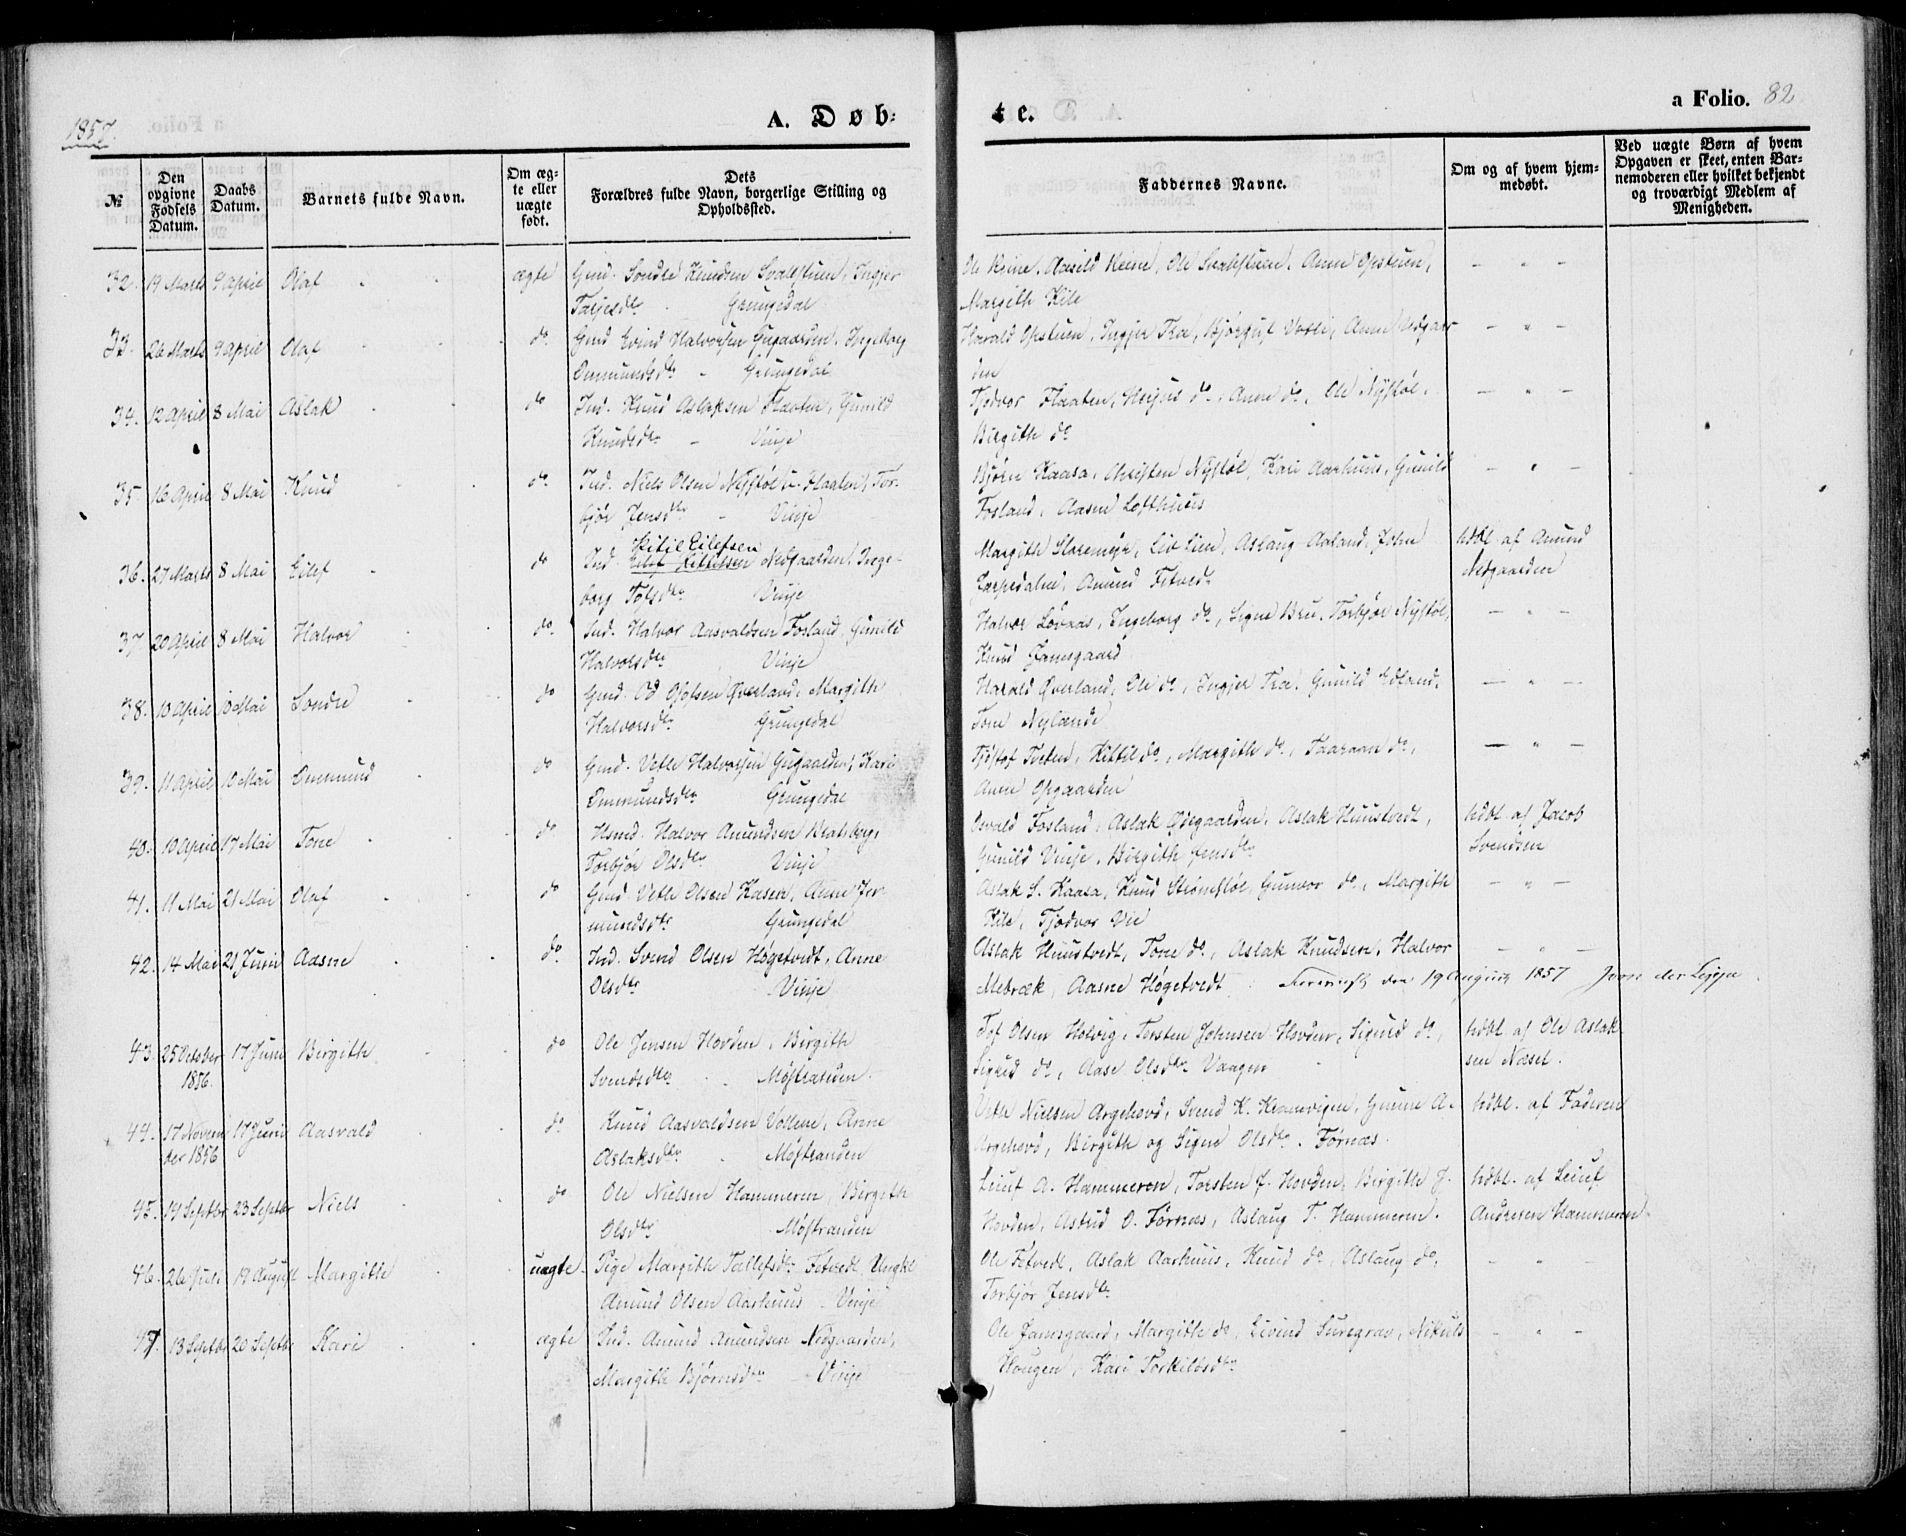 1857.
A. Døb-
te.
a Folio. 82
№
Den opgivne Fødsels Datum.
Daabs Datum.
Barnets fulde Navn.
Om ægte eller uægte født.
Dets Forældres fulde Navn, borgerlige Stilling og Opholdssted.
Faddernes Navne.
Om og af hvem hjemmedøbt.
Ved uægte Børn af hvem Opgaven er skeet, enten Barnemoderen eller hvilket bekjendt og troværdigt Medlem af Menigheden.
32. 19 Marts 9 April Olaf ægte Gmd. Sondre Knudsen Svalestuen, Ingjer
Tarjesdtr Grungedal
Ole Kleine, Aasild Kleine, Ole Svalestuen, Anne Opstuen, — " —
Margith Kile
33. 26 Marts 9 April Olaf do Gmd Eivind Halvorsen Gugaarden, Ingeborg
Ommundsdtr Grungedal
Harald Opstuen, Ingjer Træ, Bjørguf Vatle, Anne Nedgaar- — " —
den
34. 12 April 8 Mai Aslak do Ind. Knud Aslaksen Flaaten, Gunild
Knudsdtr Vinje
Tjodvor Flaaten, do, Anne do, Ole Nystøl, — " —
Birgith do
35 16 April 8 Mai Knud do Ind. Niels Olsen Nystøl u. Flaaten, Tor-
bjør Jensdtr Vinje
Bjørn Kaasa, Christen Nystøl, Kari Aarhuus, Gunild — " —
Fosland, Aasne Lofthuus
36. 27 Marts 8 Mai Eilef do Ind. Kitil Eilefsen Eilef Kittilsen Nedgaarden, Inge-
borg Tolsdtr Vinje
Margith Storemyr, Liv Lien, Aslaug Aaland, John hdbt. af Amund
Amund Fetvedt Nedgaarden
37. 20 April 8 Mai Halvor do. Ind. Halvor Aasvaldsen Fosland, Gunild
Halvorsdtr Vinje
Halvor Løvaas, Ingeborg do, Signe Bru, Torbjør Nystøl, — " —
Knud Jamsgaard
38. 10 April 10 Mai Sondre do Gmd. Od Olsen Øverland, Margith
Halvorsdtr Grungedal
Harald Øverland, Ole do, Ingjer Træ, Gunild Edland, — " —
Tone Nylænde
39. 11 April 10 Mai Ommund do Gmd. Vetle Halvorsen Gugaarden, Kari
Ommundsdtr Grungedal
Tjøstof Tveten, Kittil do, Margith do, Taaraan do, — " —
Anne Opgaarden
40. 10 April 17 Mai Tone do Hsmd. Halvor Amundsen Bratsberg,
Torbjør Olsdtr Vinje
Osvald Fosland, Aslak Øigaarden, Aslak Huustvedt, hdbt. af Jacob
Gunild Vinje, Birgith Jensdtr Svendsen
41. 11 Mai 21 Mai Olaf do Gmd Vetle Olsen Kasen, Anne Jor-
mundsdtr Grungedal
Aslak S. Kaasa, Knud Strømstøl, Gunvor do, Margith — " —
Kile, Tjodvor Vie
42. 14 Mai 21 Juni Aasne do. Ind. Svend Olsen Høgetvedt, Anne
Olsdtr Vinje
Aslak Huustvedt, Tone do, Aslak Knudsen, Halvor — " —
Mebræk, Aasne Høgetvedt den 19 August 1857
43. 25 October 17 Juni Birgith do Ole Jensen Hovden, Birgith
1856.
Svendsdtr Møstranden
Tof Olsen Holvig, Torsten Johnsen Hovden, Sigrid do, hdbt. af Ole Aslak-
Sigrid do, Aase Olsdtr Vaagen sen
44. 17 Novem- 17 Juni Aasvald do Knud Aasvaldsen Votlene, Anne
ber 1856
Aslaksdtr Møstranden
Vetle Nielsen Argehovd, Svend K. Kromvigen, Gunne A. hdbt. af Faderen
Argehovd, Birgith og Signe Olsdtr. Førnæs.
45. 14 Septbr 23 Septbr Niels do Ole Nielsen Hammeren, Birgith
Olsdtr Møstranden
Leiuf A. Hammeren, Torsten J. Hovden, Birgith J. hdbt. af Leiuf
Hovden, Astrid O. Førnæs, Aslaug T. Hammeren. Andresen Hammeren
46. 26 Juli 19 August Margith uægte. Pige Margith Tallefsdtr Fetvedt Ungkl
Amund Olsen Aarhuus Vinje
Ole Fetvedt, Aslak Aarhuus, Knud do, Aslaug do, — " —
Torbjør Jensdtr.
47. 13 Septbr 20 Septbr Kari ægte Ind. Amund Amundsen Nedgaarden,
Margith Bjørnsdtr Vinje
Ole Jamsgaard, Margith do, Eivind Suregrav, Nikuls — " —
Haugen, Kari Torkilsdtr